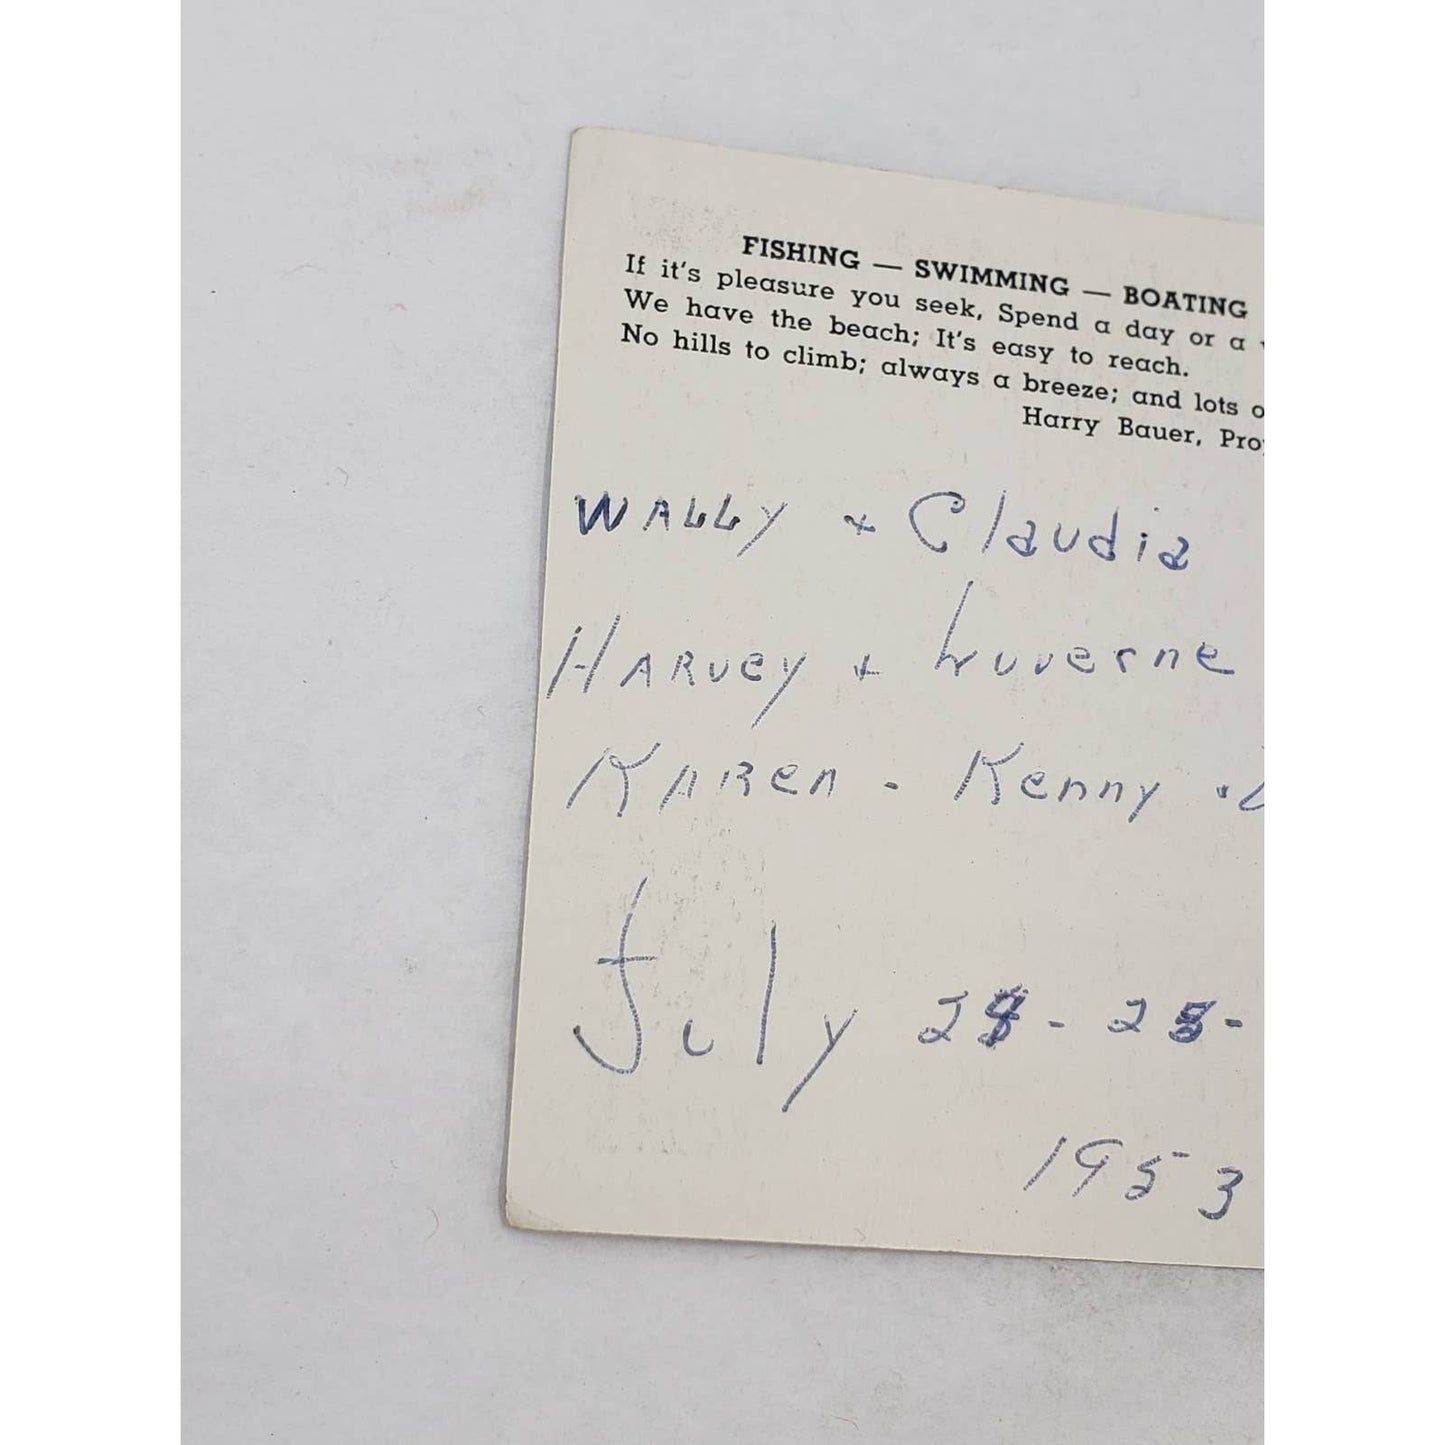 FISHING — SWIMMING — BOATING
If it's pleasure you seek, Spend a day or a
We have the beach; It's easy to reach.
No hills to climb; always a breeze; and lots
Harry Bauer,
WALLY + Claudia
HARVEY + Luverne
KAREN - Kenny
July - 25 -
1953